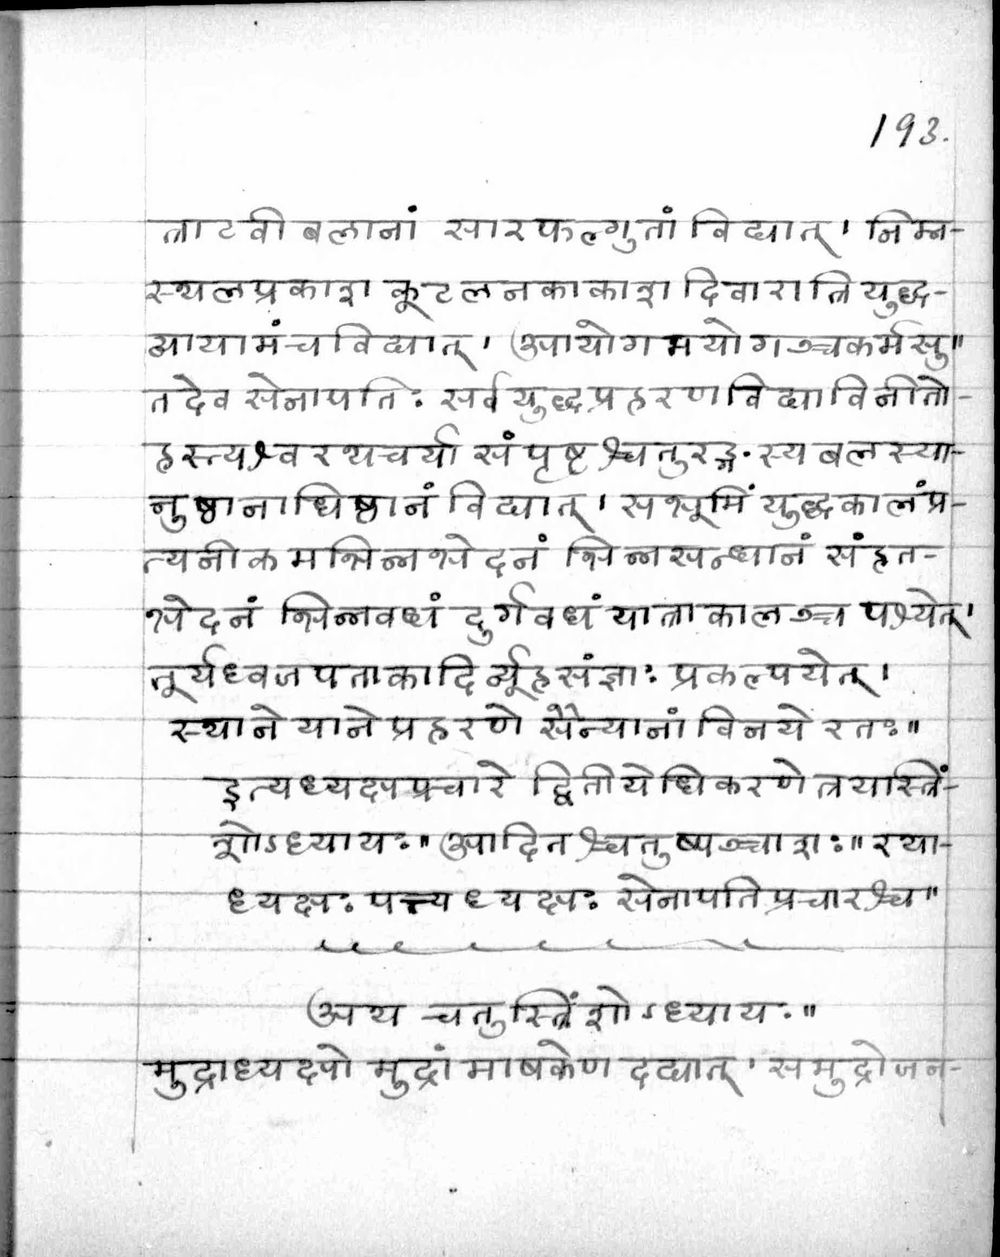 193.
त्राटवीबलानां सारफल्गुतां विद्यात्। निम्न-
स्थलप्रकाशकूटलनकाकाशदिवारात्रियुद्ध-
आयामंचविद्यात्। आयोगमयोगञ्चकर्मसु॥
तदेव सेनापतिः सर्वयुद्धप्रहरणविद्याविनीतो-
हस्त्यश्वरथचर्या संपृष्टश्चतुरङ्गस्य बलस्या-
नुष्ठानाधिष्ठानं विद्यात्। सभूमिं युद्धकालंप्र-
त्यनीकमभिन्नभेदनं भिन्नसन्धानं संहत-
भेदनं भिन्नवधं दुर्गवधं यात्राकालञ्च पश्येत्।
तूर्यध्वजपताकादिर्व्यूहसंज्ञाः प्रकल्पयेत्।
स्थाने याने प्रहरणे सैन्यानां विनये रतः॥
इत्यध्यक्षप्रचारे द्वितीयेधिकरणे त्रयास्त्रिं-
शोऽध्यायः॥ आदितश्चतुष्पञ्चाशः॥ रथा-
ध्यक्षः पत्त्यध्यक्षः सेनापतिप्रचारश्च॥
अथ चतुस्त्रिंशोऽध्यायः॥
मुद्राध्यक्षो मुद्रां माषकेण दद्यात्। समुद्रोजन-